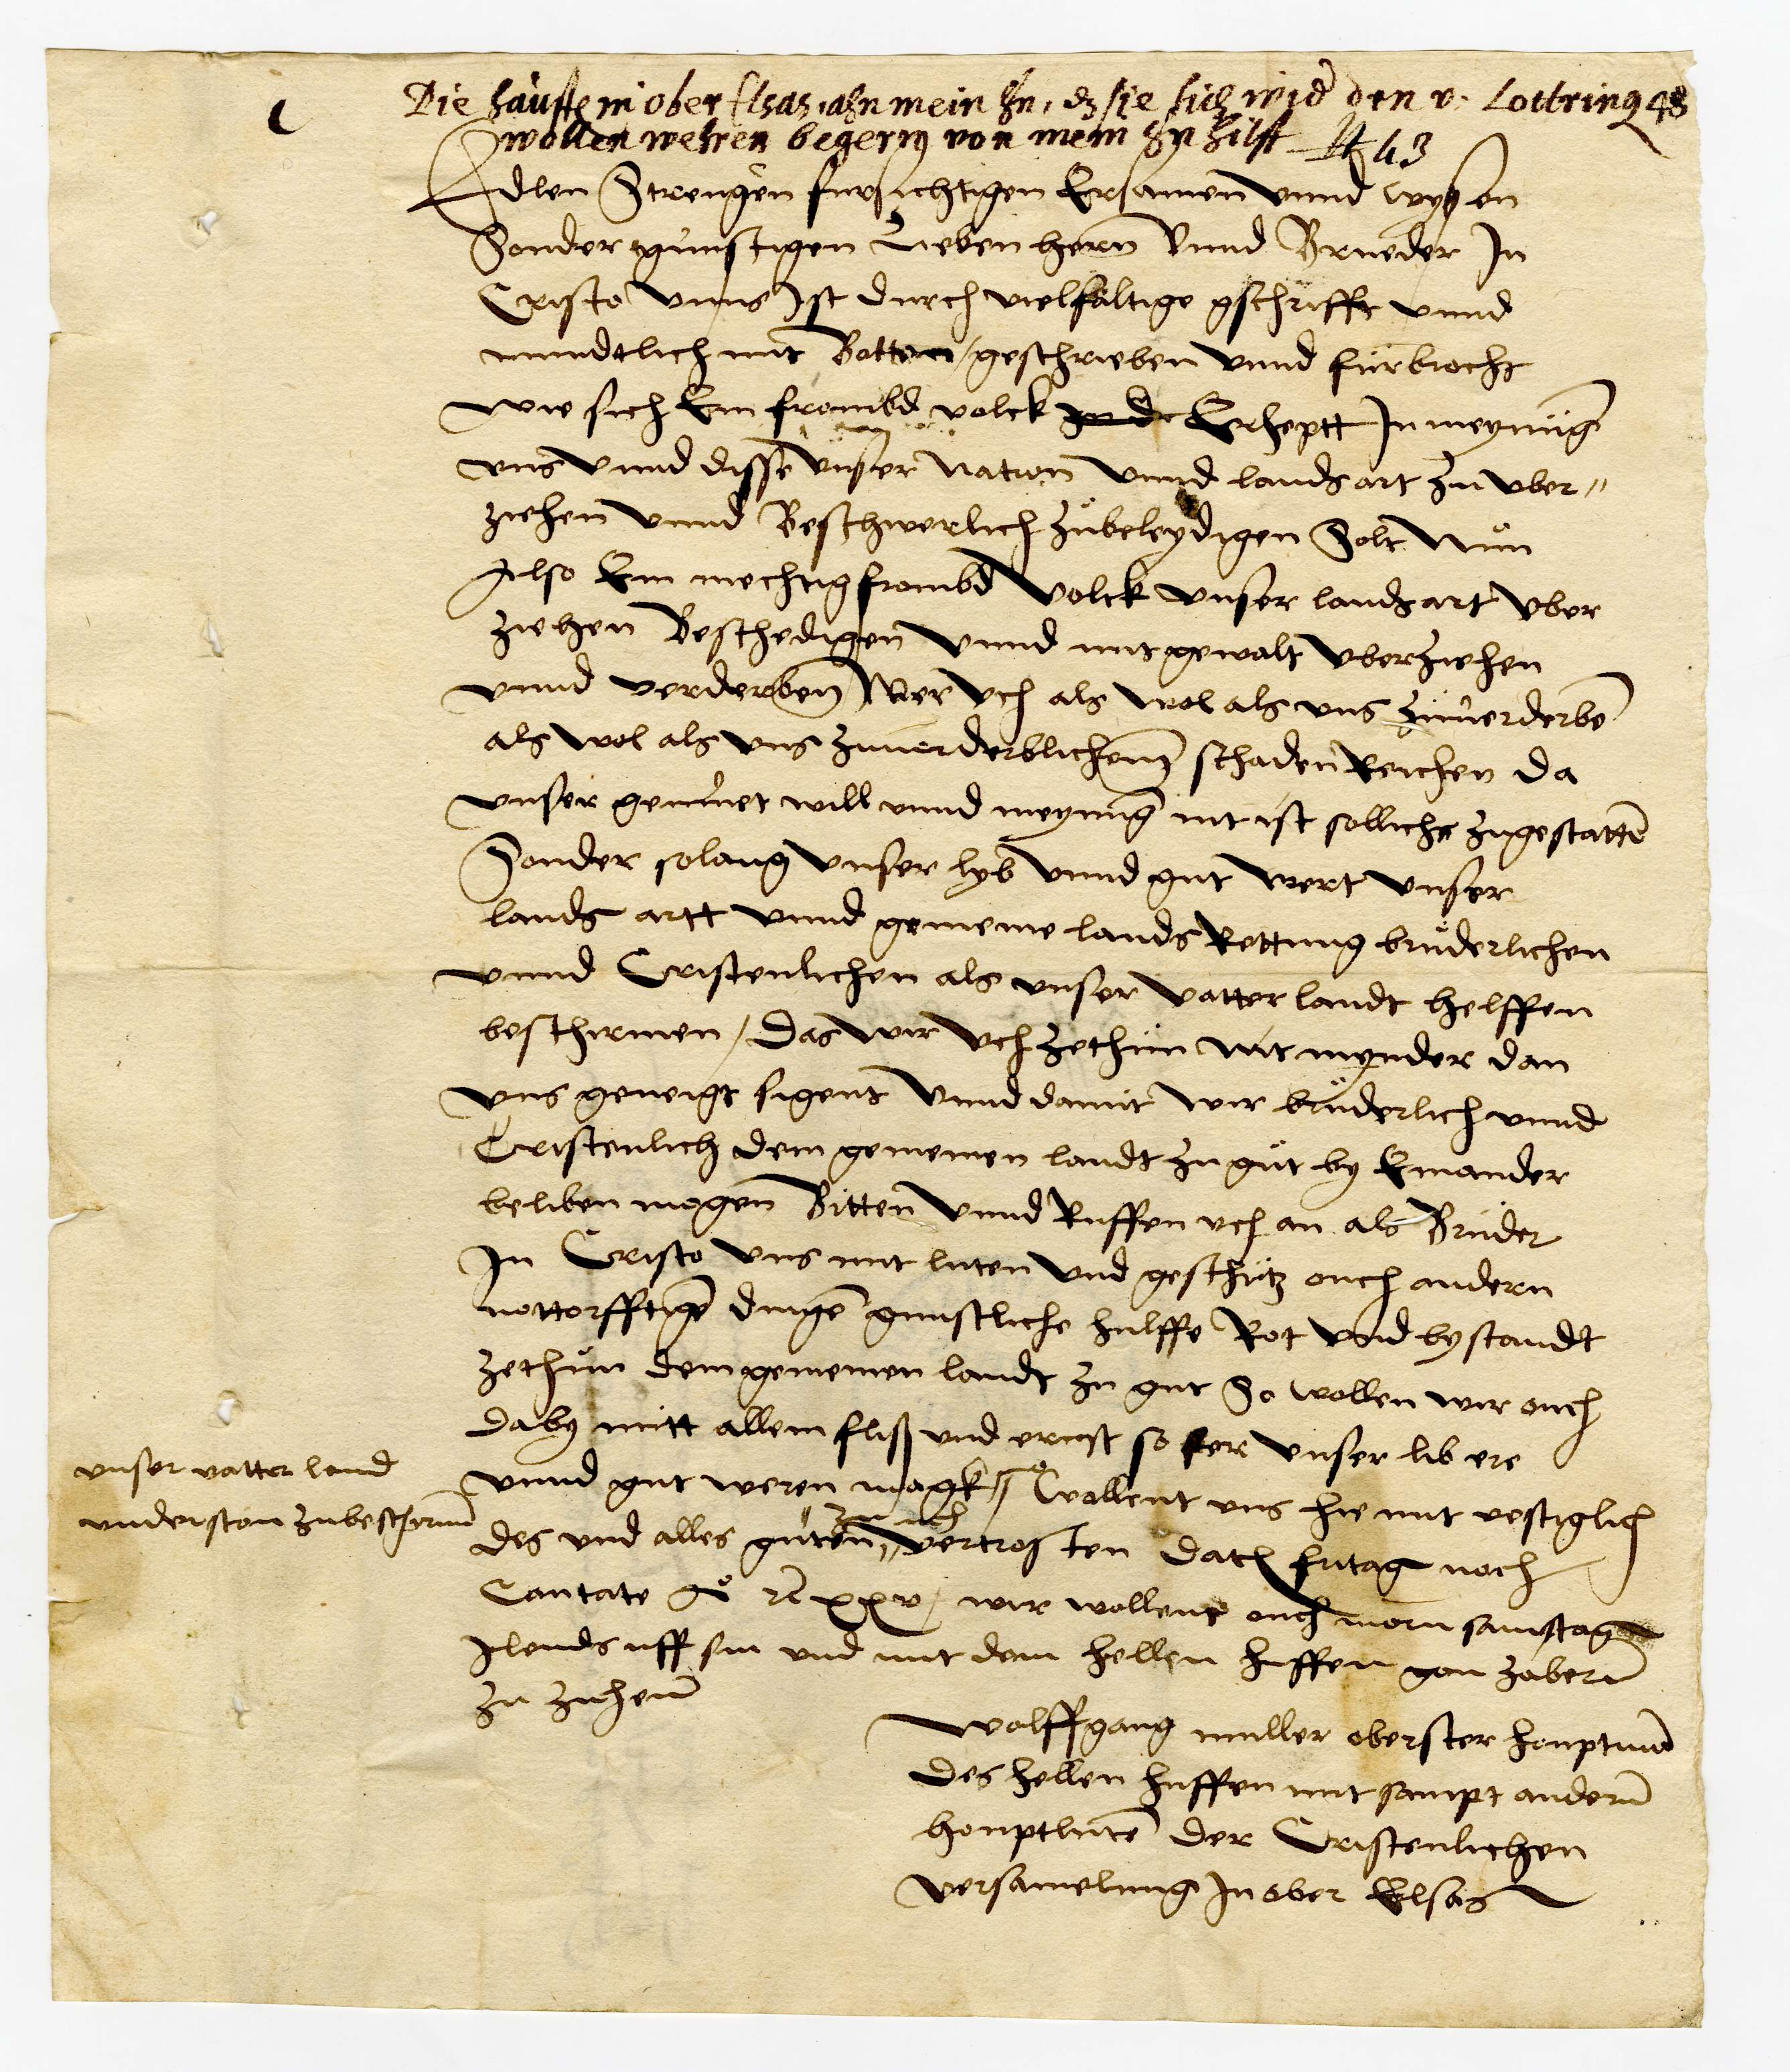 Die häuffe in ober Elsas, ahn mein hn, dz sie sich wid den v. Lottring 48
wollen wehren begern von mein hn hilff 43
Edlen Strengen fursichtigen Ersamen vnnd wysen
Sonder gunstigen Lieben hern Vnnd Brueder In
Cristo vnns Ist durch vielfältige gschrifft vnnd
mundtlich mit Botten / geschrieben vnnd fürbrocht
wie sich Ein frombd volck Erheptt In meynūg
vns vnnd disse vnser Nation vnnd landsart zu vber„
ziehen vnnd Beschwerlich zůbeleydigen Solt Nůn
Also Ein mechtig frombd Volck vnser landsart vber
ziehen Beschedigen vnnd mit gewalt vberziehen
vnnd verderben Wer Vch als wol als vns zůuerderbē
als wol als vns zuuerderblichenn schaden Reichen da
vnser gemuet will vnnd meynūg nit ist sollichs zugestattē
Sonder solang vnser lyb vnnd gut wert vnser
lands artt vnnd gemeine lands Rettung brüderlichen
vnnd Cristenlichen als vnser vatterlandt helffen
beschirmen / Das wir Vch zethůn nit mynder dan
vns geneigt sigent Vnnd damit wir brüderlich vnnd
Cristenlich dem gemeinen landt zu gůt by Einander
beliben mogen Bitten Vnnd Ruffen vch an als Brüder
In Cristo vns mit luten vnd geschütz ouch andern
nottorfftigē dingē gunstliche hulffe Rot vnd bystandt
zethůn dem gemeinen landt zu gut So wollen wir ouch
daby mitt allem fliß vnd ernst so fer vnser lib ere
vnnd gut weren magk „ Wollent vns hie mit vestiglich
vnser vatter land
vnderston zubeschirmē
zu uch
des vnd alles gůten „ vertrosten Datū fritag noch
Cantate Aº xxv / wir wollent ouch morn samstag
Ilends uff sin vnd mit dem hellen huffen gon zabern
zu ziehenn
Wolffgang muller oberster houptmā
des hellen huffen mit sampt andern
houptlutē der Cristenlichen
versamelung In ober Elsas